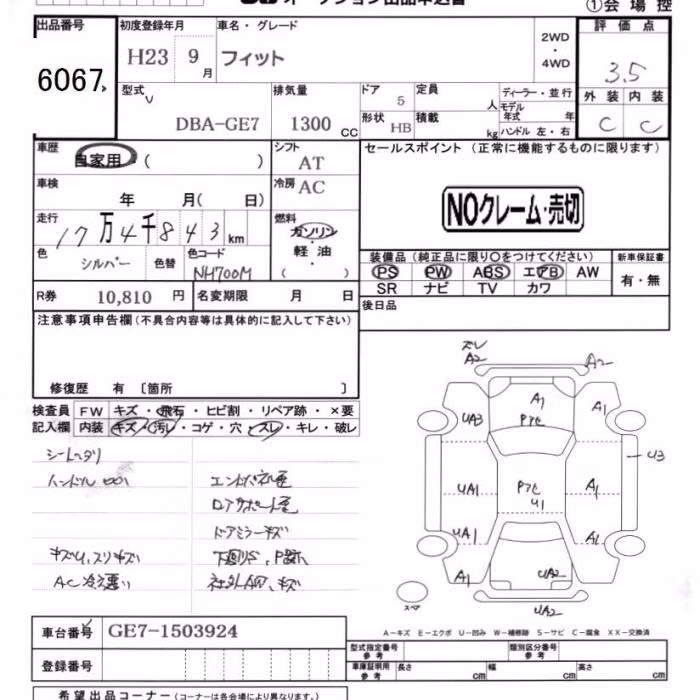 オークション出品申込書
①会場控
出品番号
6067
初度登録年月
H23 9月
車名・グレード
フィット
2WD
・
4WD
評価点
3.5
外装 内装
C C
型式
DBA-GE7
排気量
1300 CC
ドア
5
形状
HB
定員
人
積載
kg
ディーラー・並行
モデル
年式 年
ハンドル 左・右
車歴
自家用・( )
シフト
AT
車検
年 月( 日)
冷房
AC
走行
17万4千843km
燃料
ガソリン
・
軽油
・
( )
色
シルバー
色替
色コード
NH700M
セールスポイント(正常に機能するものに限ります)
NOクレーム・売切
装備品(純正品に限り〇をつけてください)
PS PW ABS エアB AW
SR ナビ TV カワ
新車保証書
有・無
R券 10,810円
名変期限 月 日
後日品
注意事項申告欄(不具合内容等は具体的に記入して下さい)
修復歴 有〔箇所 〕
検査員
記入欄
FW キズ・飛石・ヒビ割・リペア跡・×要
内装 キズ・汚レ・コゲ・穴・スレ・キレ・破レ
シートヘタリ
ドアミラーキズ
AC冷え悪い
ズレ
A2
A2
A1
UA3
A1
U3
UA1
U1
A1
UA1
A1
A1
UA2
UA2
スペア
A-キズ E-エクボ U-凹み W-補修跡 S-サビ C-腐食 XX-交換済
車台番号 GE7-1503924
登録番号
型式指定番号
参考
類別区分番号
参考
車庫証明用
参考
長さ cm
幅 cm
高さ cm
希望出品コーナー(コーナーは各会場により異なります。)